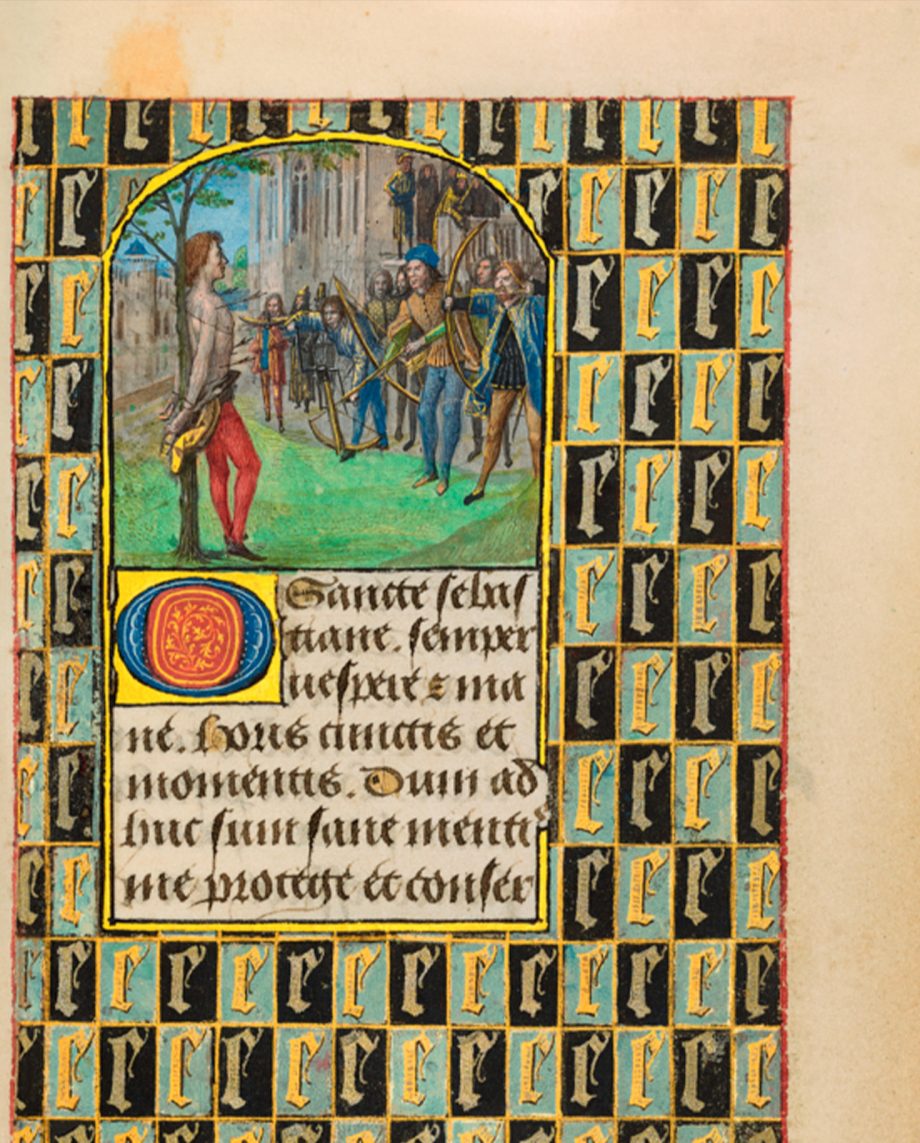 O Sancte sebas
tiane. semper
uespere ⁊ ma
ne. Horis cunctis et
momentis. Dum ad
huc sum sane mentis
me protege et conser